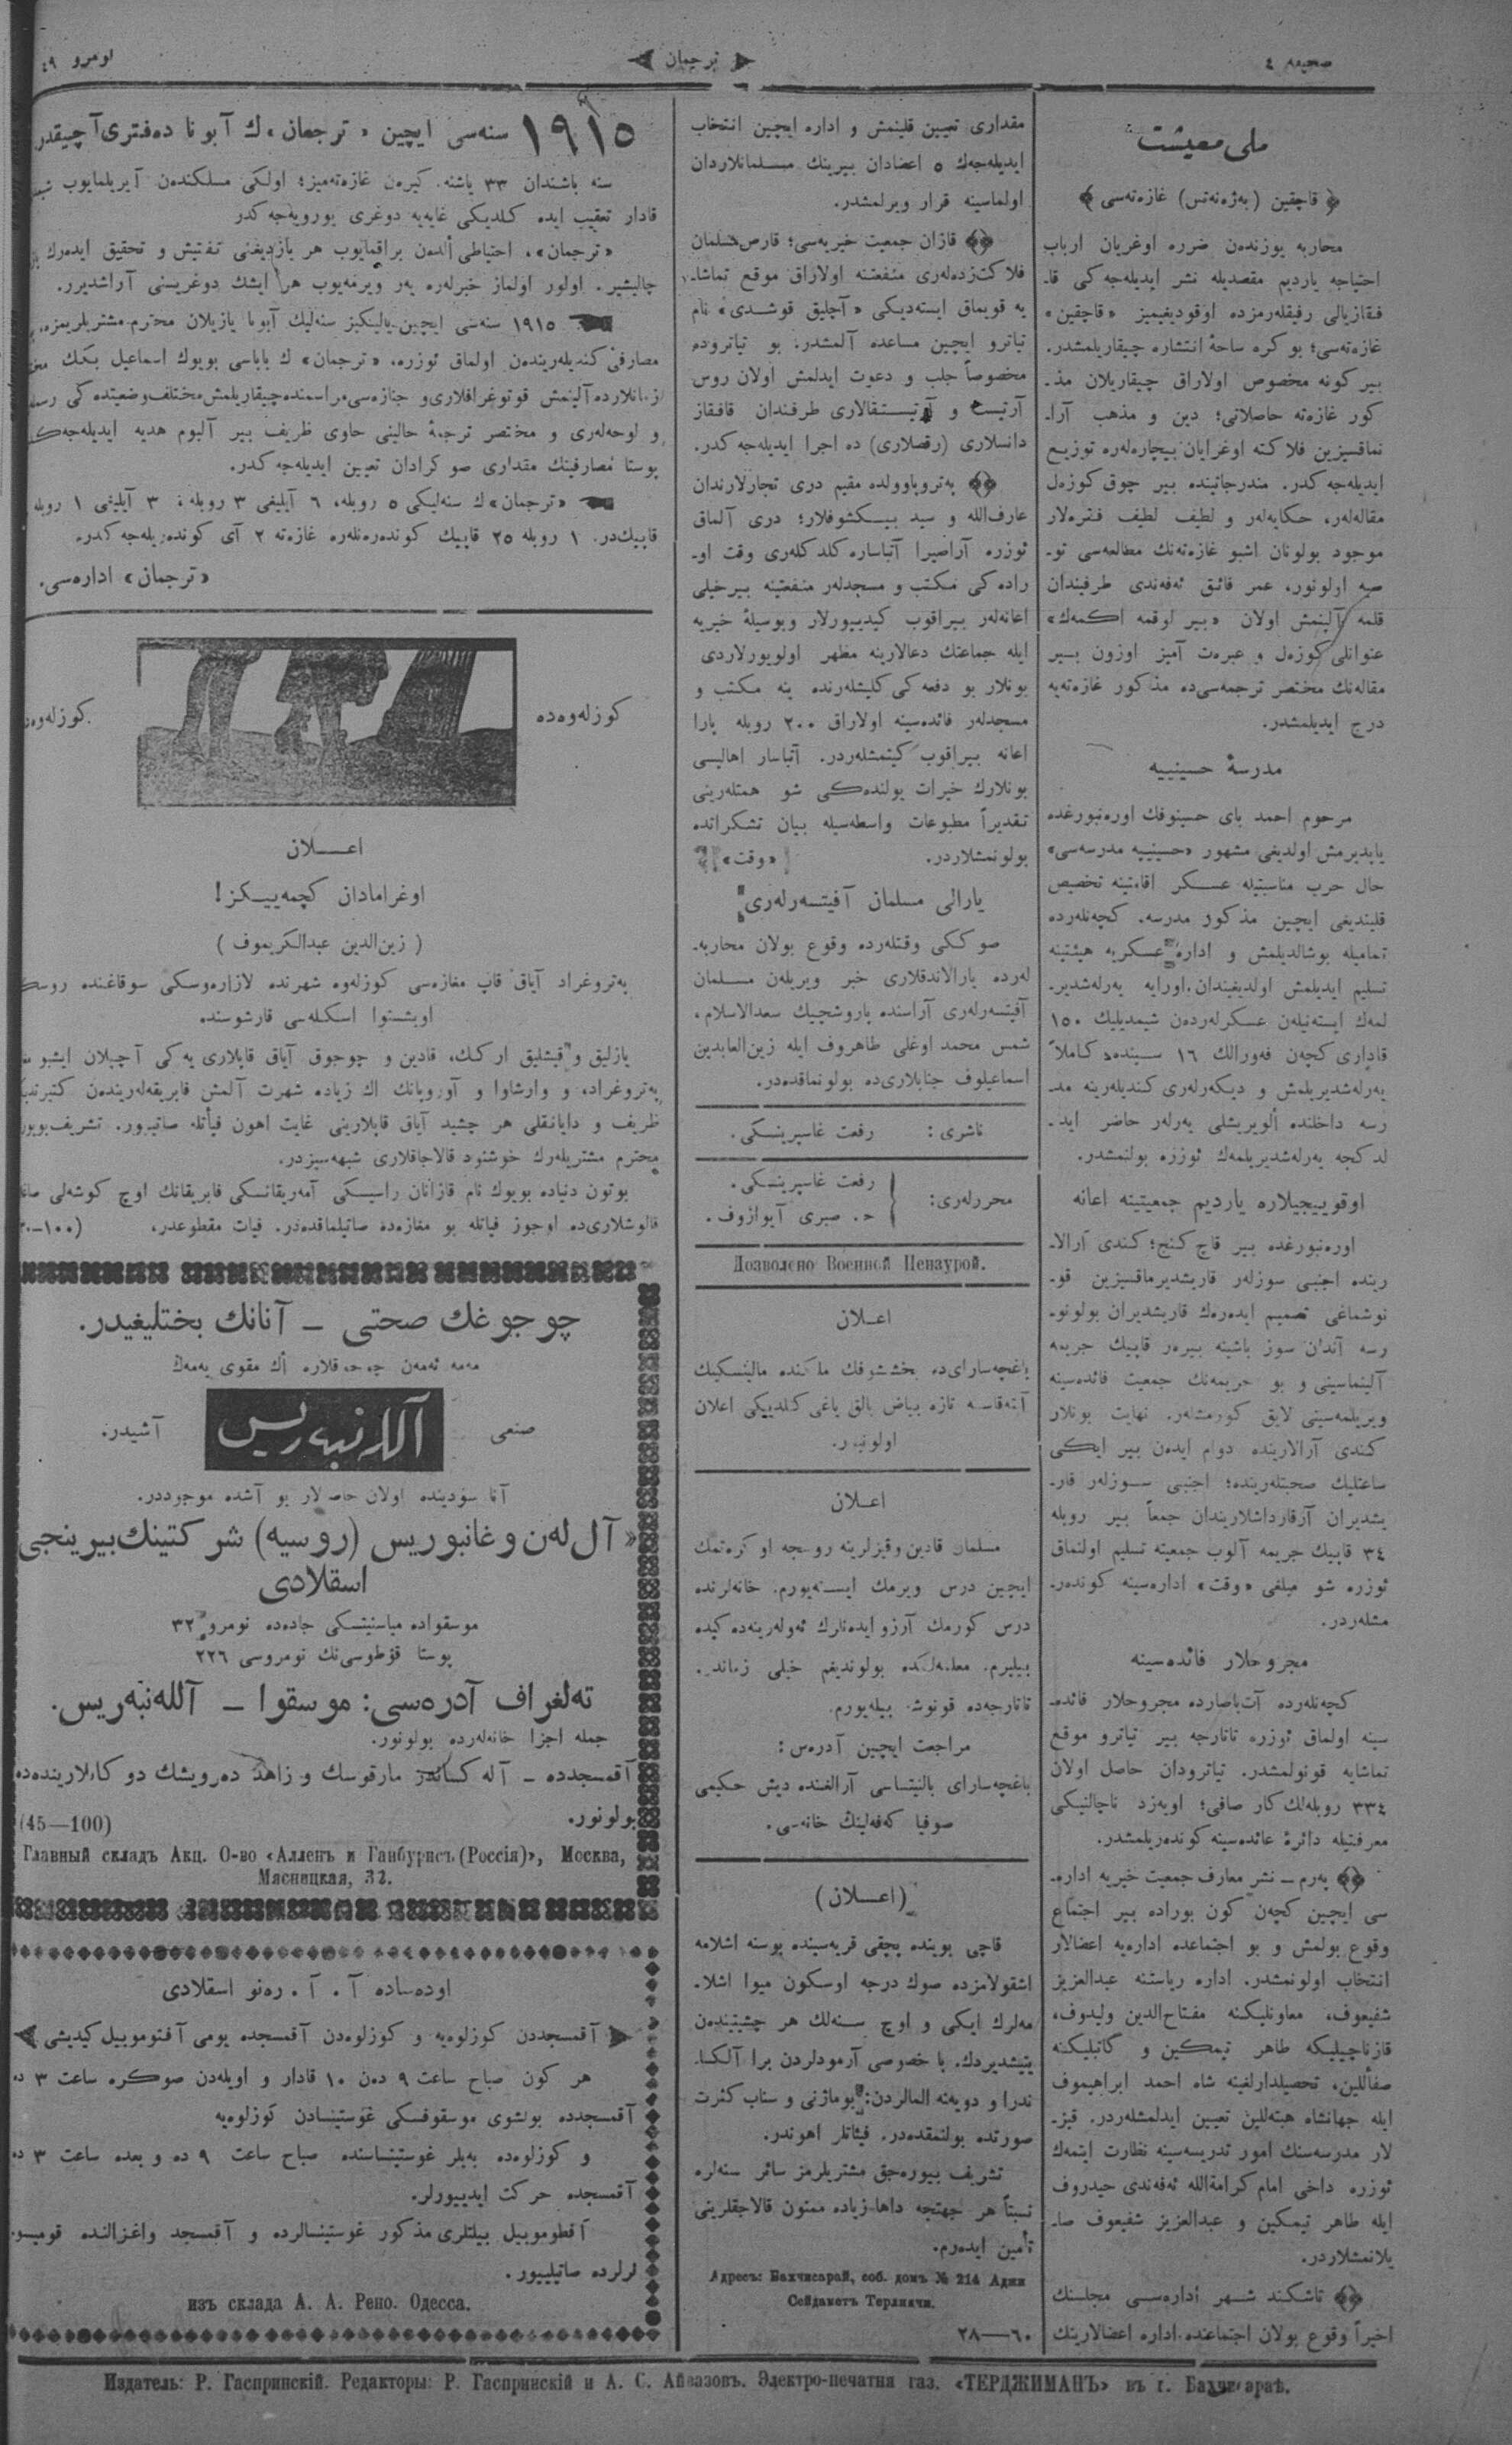 صحیفه ٤
ترجمان
نومرو ٤٩
ملی معیشت
﴿ قاچقین (به‌ژه‌نه‌تس) غازه‌ته‌سی ﴾
محاربه یوزندن ضرره اوغریان ارباب
احتیاجه یاردیم مقصدیله نشر ایدیله‌جه‌کی قا-
فقازیالی رفیقلرمزده اوقودیغیمیز «قاچقین»
غازه‌ته‌سی؛ بو کره ساحهٔ انتشاره چیقاریلمشدر.
بیر کونه مخصوص اولاراق چیقاریلان مذ-
کور غازه‌ته حاصلاتی؛ دین و مذهب آرا-
نماقسیزین فلاکته اوغرایان بیچاره‌له‌ره توزیع
ایدیله‌جه‌کدر. مندرجاتینده بیر چوق کوزه‌ل
مقاله‌له‌ر، حکایه‌له‌ر و لطیف لطیف فقره‌لار
موجود بولونان اشبو غازه‌ته‌نك مطالعه‌سی تو-
صیه اولونور، عمر فائق ئه‌فه‌ندی طرفیندان
قلمه آلینمش اولان «بیر لوقمه اکمه‌ك»
عنوانلی کوزه‌ل و عبرت آمیز اوزون بیر
مقاله‌نك مختصر ترجمه‌سی‌ده مذکور غازه‌ته‌یه
درج ایدیلمشدر.
مدرسهٔ حسینییه
مرحوم احمد بای حسینوفك اوره‌نبورغده
یاپدیرمش اولدیغی مشهور «حسینییه مدرسه‌سی»
حال حرب مناسبتیله عسکر اقامتینه تخصیص
قلیندیغی ایچین مذکور مدرسه. کچه‌نله‌رده
تمامیله بوشالدیلمش و اداره عسکریه هیئتینه
تسلیم ایدیلمش اولدیغیندان. اورایه یه‌رله‌شدیر-
لمه‌ك ایسته‌نیله‌ن عسکرله‌رده‌ن شیمدیلیك ١٥٠
قاداری کچه‌ن فه‌ورالك ١٦ سینده کاملاً
یه‌رله‌شدیریلمش و دیکه‌رله‌ری کندیله‌رینه مد-
رسه داخلنده ألویریشلی یه‌رله‌ر حاضر اید-
لدکجه یه‌رله‌شدیریلمه‌ك ئوزره بولنمشدر.
اوقوییجیلاره یاردیم جمعیتینه اعانه
اوره‌نبورغده بیر قاچ کنج؛ کندی آرالا-
رینده اجنبی سوزله‌ر قاریشدیرماقسیزین قو-
نوشماغی تصمیم ایده‌ره‌ك قاریشدیران بولونو-
رسه آندان سوز باشینه بیره‌ر قاپیك جریمه
آلینماسینی و بو جریمه‌نك جمعیت فائده‌سینه
ویریلمه‌سینی لایق کورمشله‌ر. نهایت بونلار
کندی آرالارینده دوام ایده‌ن بیر ایکی
ساعتلیك صحبتله‌رینده؛ اجنبی سوزله‌ر قار-
یشدیران آرقارداشلاریندان جمعاً بیر روبله
٣٤ قاپیك جریمه آلوب جمعیته تسلیم اولنماق
ئوزره شو مبلغی «وقت» اداره‌سینه کونده‌ر-
مشله‌ردر.
مجروحلار فائده‌سینه
کچه‌نله‌رده آت‌باصارده مجروحلار فائده-
سینه اولماق ئوزره تاتارجه بیر تیاترو موقع
تماشایه قونولمشدر. تیاترودان حاصل اولان
٣٣٤ روبله‌لك کار صافی؛ اویه‌زد ناچالنیکی
معرفتیله دائرهٔ عائده‌سینه کونده‌ریلمشدر.
یه‌رم – نشر معارف جمعیت خیریه اداره-
سی ایچین کچه‌ن کون بوراده بیر اجتماع
وقوع بولمش و بو اجتماعده اداره‌یه اعضالار
انتخاب اولونمشدر. اداره ریاستنه عبدالعزیز
شفیعوف، معاونلیکنه مفتاح‌الدین ولیدوف،
قازناچیلیکه طاهر تیمکین و کاتبلیکنه
صفاللین، تحصیلدارلغینه شاه احمد ابراهیموف
ایله جهانشاه هبته‌للین تعیین ایدلمشله‌ردر. قیز-
لار مدرسه‌سنك امور تدریسه‌سینه نظارت ایتمه‌ك
ئوزره داخی امام کرامةالله ئه‌فه‌ندی حیدروف
ایله طاهر تیمکین و عبدالعزیز شفیعوف صا-
یلانمشلاردر.
تاشکند شهر أداره‌سی مجلسنك
اخیراً وقوع بولان اجتماعنده اداره اعضالارینك
مقداری تعیین قلینمش و اداره ایچین انتخاب
ایدیله‌جه‌ك ٥ اعضادان بیرینك مسلمانلاردان
اولماسینه قرار ویرلمشدر.
قازان جمعیت خیریه‌سی؛ قارص مسلمان
فلاکت‌زده‌له‌ری منفعتنه اولاراق موقع تماشا-
یه قویماق ایسته‌دیکی «آچلیق قوشدی» نام
تیاترو ایچین مساعده آلمشدر. بو تیاتروده
مخصوصاً جلب و دعوت ایدلمش اولان روس
آرتیست و آرتیستقالاری طرفندان قافقاز
دانسلاری (رقصلاری) ده اجرا ایدیله‌جه‌کدر.
په‌تروپاوولده مقیم دری تجارلارندان
عارف‌الله و سید بیکشوفلار؛ دری آلماق
ئوزره آراصیرا آتباساره کلدکله‌ری وقت او-
راده‌کی مکتب و مسجدله‌ر منفعتینه بیرخیلی
اعانه‌له‌ر بیراقوب کیدییورلار وبوسیلهٔ خیریه
ایله جماعتك دعالارینه مظهر اولویورلاردی
بونلار بو دفعه‌کی کلیشله‌رنده ینه مکتب و
مسجدله‌ر فائده‌سینه اولاراق ٢٠٠ روبله پارا
اعانه بیراقوب کیتمشله‌ردر. آتباسار اهالیسی
بونلارك خیرات یولنده‌کی شو همتله‌رینی
تقدیراً مطبوعات واسطه‌سیله بیان تشکراتده
بولونمشلاردر. «وقت»
یارالی مسلمان آفیتسه‌رله‌ری
صوکی وقتله‌رده وقوع بولان محاربه-
له‌رده یارالاندقلاری خبر ویریله‌ن مسلمان
آفیتسه‌رله‌ری آراسنده یاروشچیك سعدالاسلام،
شمس محمد اوغلی طاهروف ایله زین‌العابدین
اسماعیلوف جنابلاری‌ده بولونماقده‌در.
ناشری: رفعت غاسپرینسکی.
محررله‌ری: رفعت غاسپرینسکی.
ح. صبری آیوازوف.
Дозволено Военной Цензурой.
اعلان
باغچه‌سارای‌ده بخششوفك ملکنده مالینسکینك
آپته‌قاسنه تازه بیاض بالق یاغی کلدییکی اعلان
اولونور.
اعلان
مسلمان قادین وقیزلرینه روسجه اوکره‌تمك
ایچین درس ویرمك ایسته‌یورم. خانه‌لرنده
درس کورمك آرزو ایده‌نلرك ئه‌وله‌رینه‌ده کیده
بیلیرم. معلمه‌لکده بولوندیغم خیلی زماندر.
تاتارجه‌ده قونوشه بیله‌یورم.
مراجعت ایچین آدره‌س:
باغچه‌سارای بالنیتساسی آرالغنده دیش حکیمی
صوفیا که‌فه‌لینڭ خانه‌سی.
(اعلان)
قاچی بوینده بچقی قریه‌سینده بوسنه اشلامه
اشقولامزده صوك درجه اوسکون میوا اشلا-
مه‌لرك ایکی و اوچ سنه‌لك هر چشیتیندن
یتیشدیردك. با خصوصی آرمودلردن برا آلکسا-
ندرا و دویه‌نه المالردن: بوماژنی و سناب کثرت
صورتده بولنمقده‌در. فیئاتلر اهوندر.
تشریف بیوره‌جق مشتریلرمز سائر سنه‌لره
نسبتاً هر جهتجه داها زیاده ممنون قالاجقلرینی
تأمین ایده‌رم.
Адресъ: Бахчисарай, соб. домъ № 214 Аджи
Сейдаметъ Терликчи.
٦٠—٢٨
١٩١٥ سنه‌سی ایچین «ترجمان» ك آبونا ده‌فتری آچیقدر
سنه باشندان ٣٣ یاشنه. کیره‌ن غازه‌ته‌میز؛ اولکی مسلکنده‌ن آیریلمایوب
قادار تعقیب ایده کلدیکی غایه‌یه دوغری یورویه‌جه‌کدر
«ترجمان»، احتیاطی ألده‌ن براقمایوب هر یازدیغنی تفتیش و تحقیق ایده‌رك
چالیشیر. اولور اولماز خبرله‌ره یه‌ر ویرمه‌یوب هر ایشك دوغریسنی آراشدیرر.
١٩١٥ سنه‌سی ایچین یالیکیز سنه‌لیك آبونا یازیلان محترم مشتریلریمزه،
مصارفی کندیله‌رینده‌ن اولماق ئوزره، «ترجمان» ك باباسی بویوك اسماعیل بکك
زمانلارده آلینمش فوتوغرافلاری و جنازه‌سی مراسمنده چیقاریلمش مختلف وضعیتده‌کی رسم
و لوحه‌له‌ری و مختصر ترجمهٔ حالینی حاوی ظریف بیر آلبوم هدیه ایدیله‌جه‌ك
پوستا مصارفینك مقداری صوکرادان تعیین ایدیله‌جه‌کدر.
«ترجمان» ك سنه‌لیکی ٥ روبله، ٦ آیلیغی ٣ روبله، ٣ آیلیغی ١ روبله
قاپیك‌در. ١ روبله ٢٥ قاپیك کونده‌ره‌نله‌ره غازه‌ته ٢ آی کونده‌ریله‌جه‌کدر.
«ترجمان» اداره‌سی.
کوزله‌وه‌ده
کوزله‌وه‌ده
اعلان
اوغرامادان کچمه‌ییکز!
( زین‌الدین عبدالکریموف )
په‌تروغراد آیاق قاپ مغازه‌سی کوزله‌وه شهرنده لازاره‌وسکی سوقاغنده روسك
اوبشستوا اسکله‌سی قارشوسنده
یازلیق و قیشلیق ارکك، قادین و چوجوق آیاق قاپلاری یه‌کی آچیلان ایشبو
په‌تروغراد، و وارشاوا و آوروپانك اك زیاده شهرت آلمش فابریقه‌له‌رینده‌ن
ظریف و دایانقلی هر چشید آیاق قاپلارینی غایت اهون فیأتله صاتیور. تشریف
محترم مشتریله‌رك خوشنود قالاجاقلاری شبهه‌سیزدر.
بوتون دنیاده بویوك نام قازانان راسیسکی آمه‌ریقانسکی فابریقانك اوچ کوشه‌لی
قالوشلاری‌ده اوجوز فیاتله بو مغازه‌ده صاتیلماقده‌در. فیات مقطوعدر.
چوجوغك صحتی – آنانك بختلیغیدر.
مه‌مه ئه‌مه‌ن چوجوقلاره أك مقوی یه‌مه‌ك
صنعی
آللانبه‌ریس
آشیدر.
آنا سودینده اولان خاصه‌لار بو آشده موجوددر.
«آل‌له‌ن و غانبوریس (روسیه) شرکتینك بیرینجی
اسقلادی
موسقواده میاسنیتسکی جاده‌ده نومرو ٣٢
پوستا قوطوسی‌نك نومروسی ٢٢٦
ته‌لغراف آدره‌سی: موسقوا – آلله‌نبه‌ریس.
جمله اجزا خانه‌له‌رده بولونور.
آقمسجدده – آله‌کساندر مارقوسك و زاهد ده‌رویشك دوکانلارینده‌ده
بولونور.
(45—100)
Главный складъ Акц. О-во «Алленъ и Ганбурисъ (Россія)», Москва,
Мясницкая, 32.
اوده‌ساده آ. آ. ره‌نو اسقلادی
آقمسجددن کوزلوه‌یه و کوزلوه‌دن آقمسجده یومی آفتوموبیل کیدیشی
هر کون صباح ساعت ٩ ده‌ن ١٠ قادار و اویله‌دن صوکره ساعت ٣ ده
آقمسجدده بولشوی موسقوفسکی غوستینسادن کوزلوه‌یه
و کوزلوه‌ده به‌یلر غوستینساسنده صباح ساعت ٩ ده و بعده ساعت ٣ ده
آقمسجده حرکت ایدییورلر.
آفطوموبیل بیلتلری مذکور غوستینسالرده و آقمسجد واغزالنده قومیسو
نرلرده صاتیلییور.
изъ склада А. А. Рено. Одесса.
Издатель: Р. Гаспринскій. Редакторы: Р. Гаспринскій и А. С. Айвазовъ. Электро-печатня газ. «ТЕРДЖИМАНЪ» въ г. Бахчисараѣ.